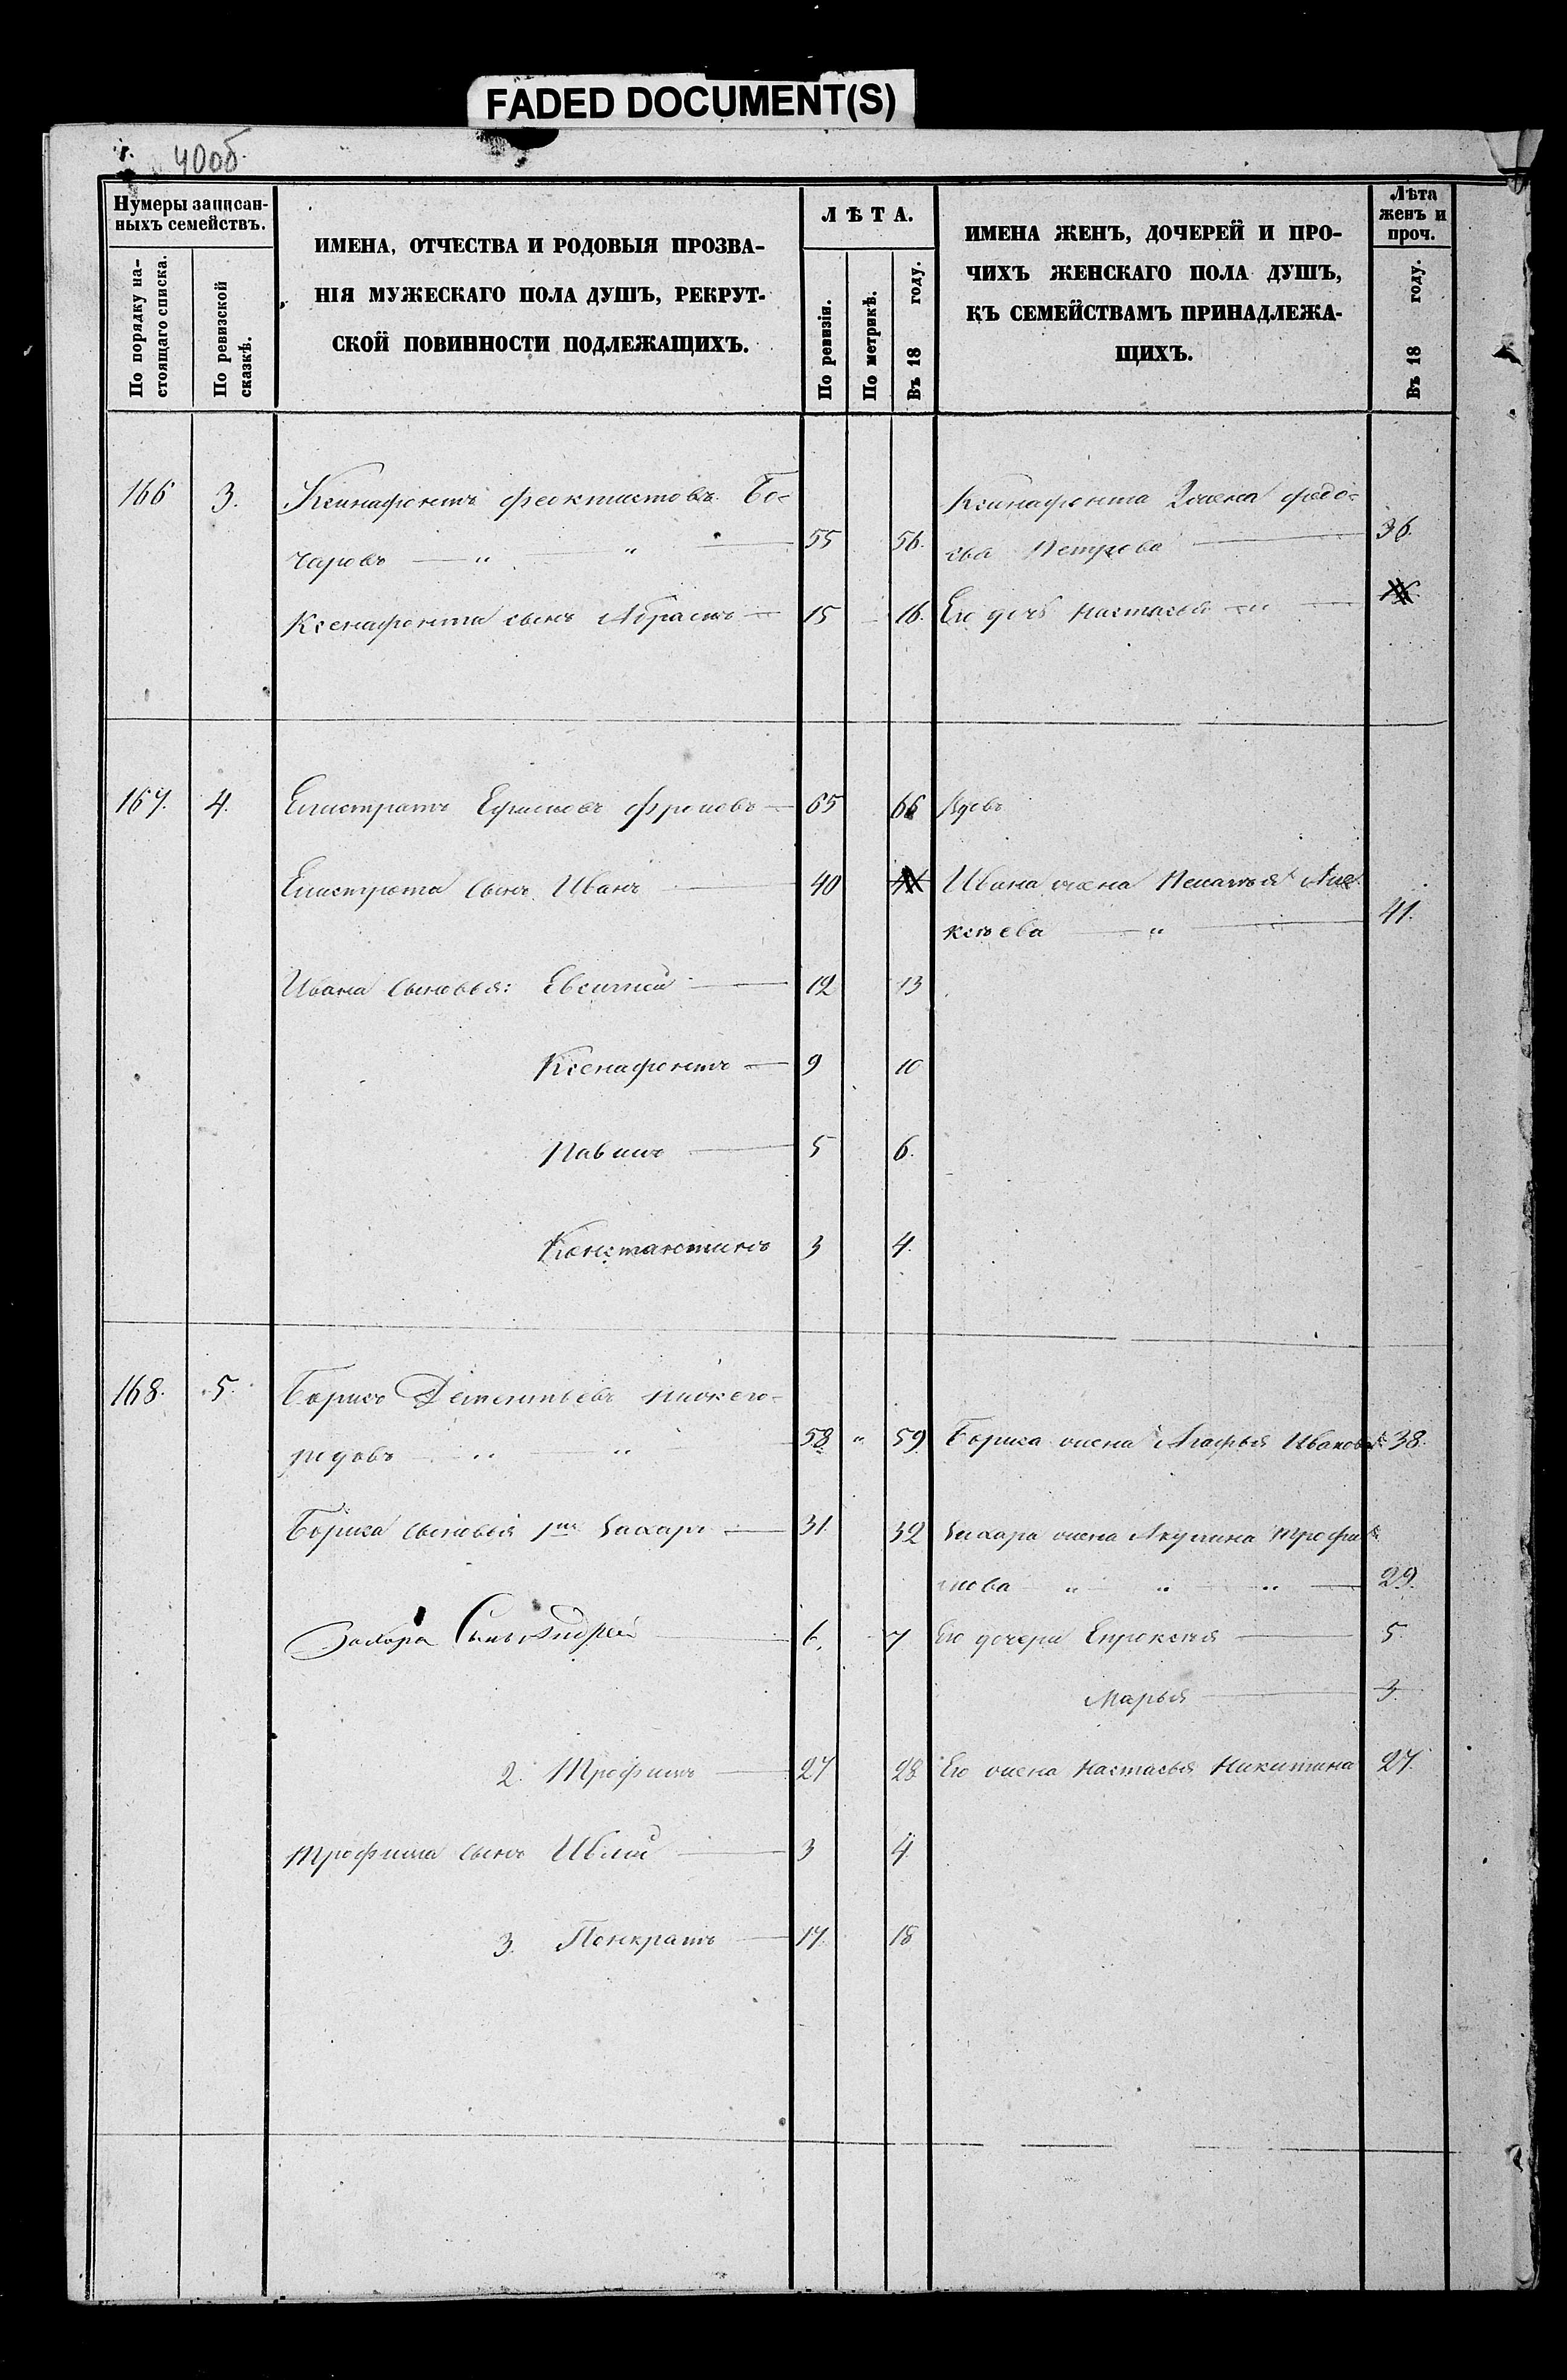 FADED DOCUMENT(S)
40об.
Нумеры записан-
ныхъ семействъ.
По порядку на-
стоящаго списка.
По ревизской
сказкѣ.
ИМЕНА, ОТЧЕСТВА И РОДОВЫЯ ПРОЗВА-
НІЯ МУЖЕСКАГО ПОЛА ДУШЪ, РЕКРУТ-
СКОЙ ПОВИННОСТИ ПОДЛЕЖАЩИХЪ.
ЛѢТА.
По ревизіи.
По метрикѣ.
Въ 18 году.
ИМЕНА ЖЕНЪ, ДОЧЕРЕЙ И ПРО-
ЧИХЪ ЖЕНСКАГО ПОЛА ДУШЪ,
КЪ СЕМЕЙСТВАМЪ ПРИНАДЛЕЖА-
ЩИХЪ.
Лѣта
женъ и
проч.
Въ 18 году.
166 3. Ксинафонтъ Феоктистовъ Бо- Ксинафонта Жена Федо-
чаровъ — " " — 55 56. сья Петрова — 36.
Ксенафонта сынъ Абрамъ — 15 16. Его дочь Настасья — " —
167. 4. Елистратъ Ефимовъ Фроловъ — 65 66 Вдовъ
Елистрата сынъ Иванъ — 40 Ивана жена Пелагея Але-
ксѣева — " — 41.
Ивана сыновья: Евсигний — 12 13
Ксенафонтъ — 9 10
Павилъ — 5 6.
Константинъ 3 4.
168. 5. Борисъ Дементьевъ Нижего-
родовъ — " " — 58 " 59 Бориса жена Агафья Иванова 38.
Бориса сыновья 1й Захаръ — 31. 32 Захара жена Акулина Трофи-
мова — " " " — 29.
Захара Сынъ Андрей — 6. 7 Его дочери Епроксенія — 5.
Марья — 3.
2. Трофимъ — 27 28 Его жена Настасья Никитина 27.
Трофима сынъ Ивлий — 3 4
3. Понкратъ — 17. 18